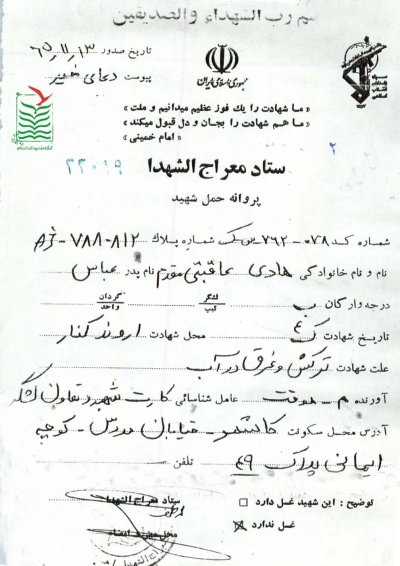 بسم رب الشهداء والصدیقین
تاریخ صدور ۶۵,۱۱,۱۳
پیوست دعای خیر
جمهوری اسلامی ایران
« ما شهادت را یك فوز عظیم میدانیم و ملت »
« ما هم شهادت را بجان و دل قبول میکند »
« امام خمینی »
۲
ستاد معراج الشهدا
۲۲۰۱۹
پروانه حمل شهید
شماره کد ۰۷۸-۷۶۲ شماره پلاك ۸۱۲-۷۸۸
نام و نام خانوادگی هادی عاقبتی مقدم نام پدر عباس
درجه و ارگان ب لشگر تیپ گردان واحد
تاریخ شهادت ک ۴ محل شهادت اروند کنار
علت شهادت ترکش و غرق در آب
آورنده عامل شناسائی کارت شهید و تعاون لشگر
آدرس محل سکونت کاشمر - خیابان مدرس - کوچه
ایمانی پلاک ۴۹ تلفن -
توضیح : این شهید غسل دارد □
غسل ندارد ☒
ستاد معراج الشهدا
محل مهر و امضاء